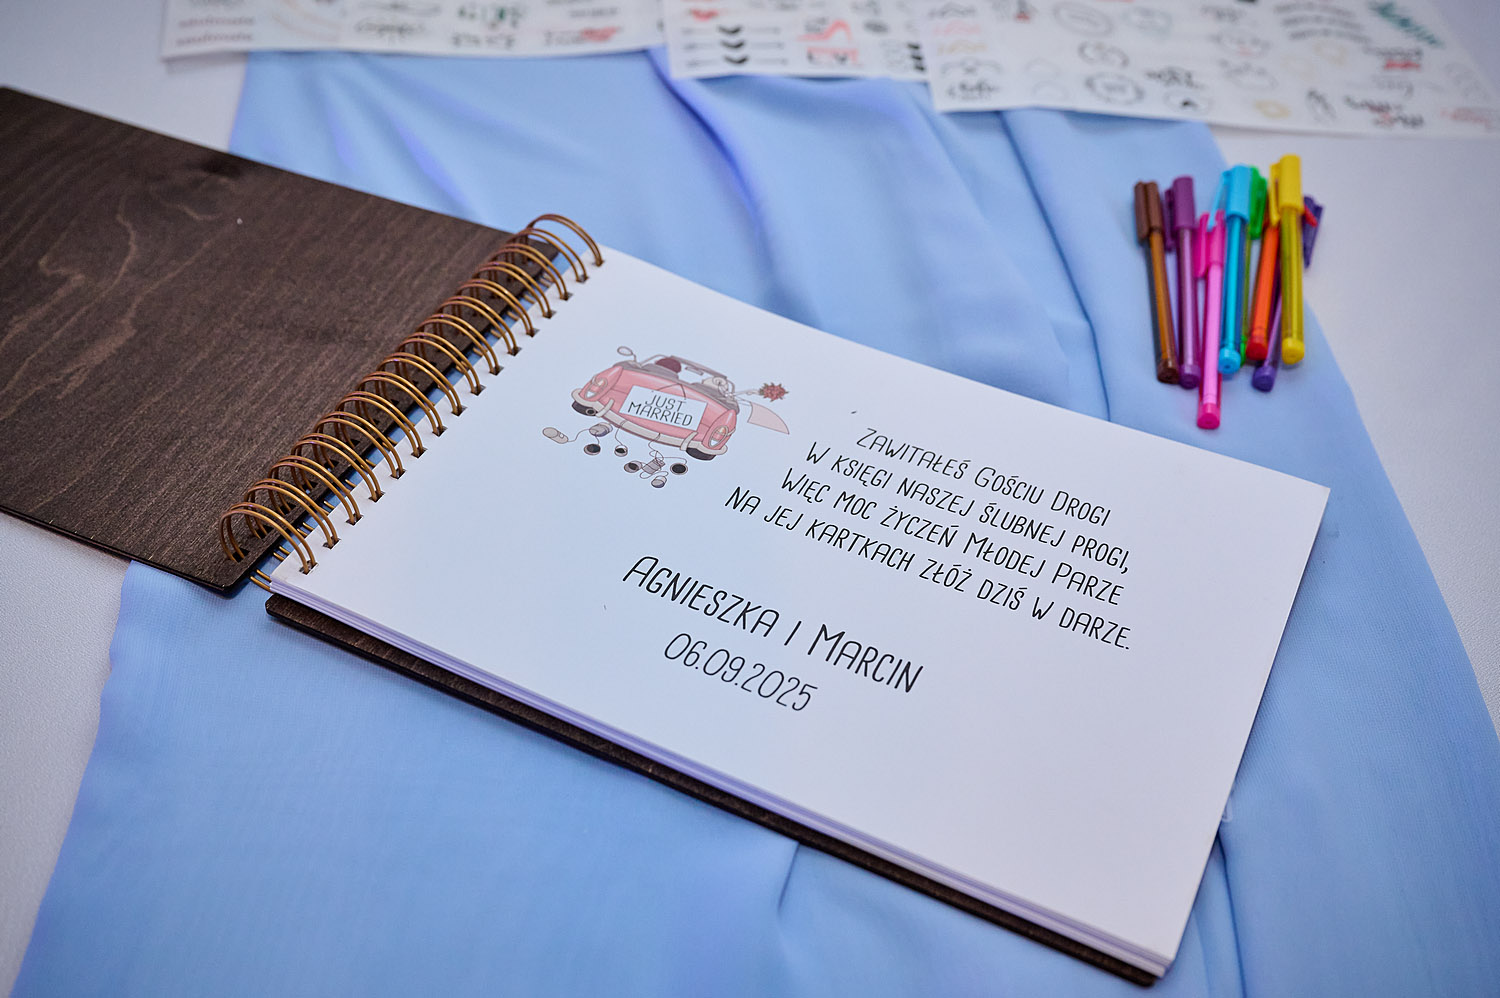 JUST
MARRIED
Zawitałeś Gościu Drogi
w księgi naszej ślubnej progi,
więc moc życzeń Młodej Parze
na jej kartkach złóż dziś w darze.
Agnieszka i Marcin
06.09.2025